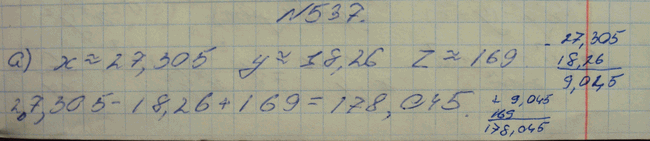 №537.
а) x ≈ 27,305 y ≈ 18,26 z ≈ 169
27,305 - 18,26 + 169 = 178,045.
- 27,305
18,26
9,045
+ 9,045
169
178,045